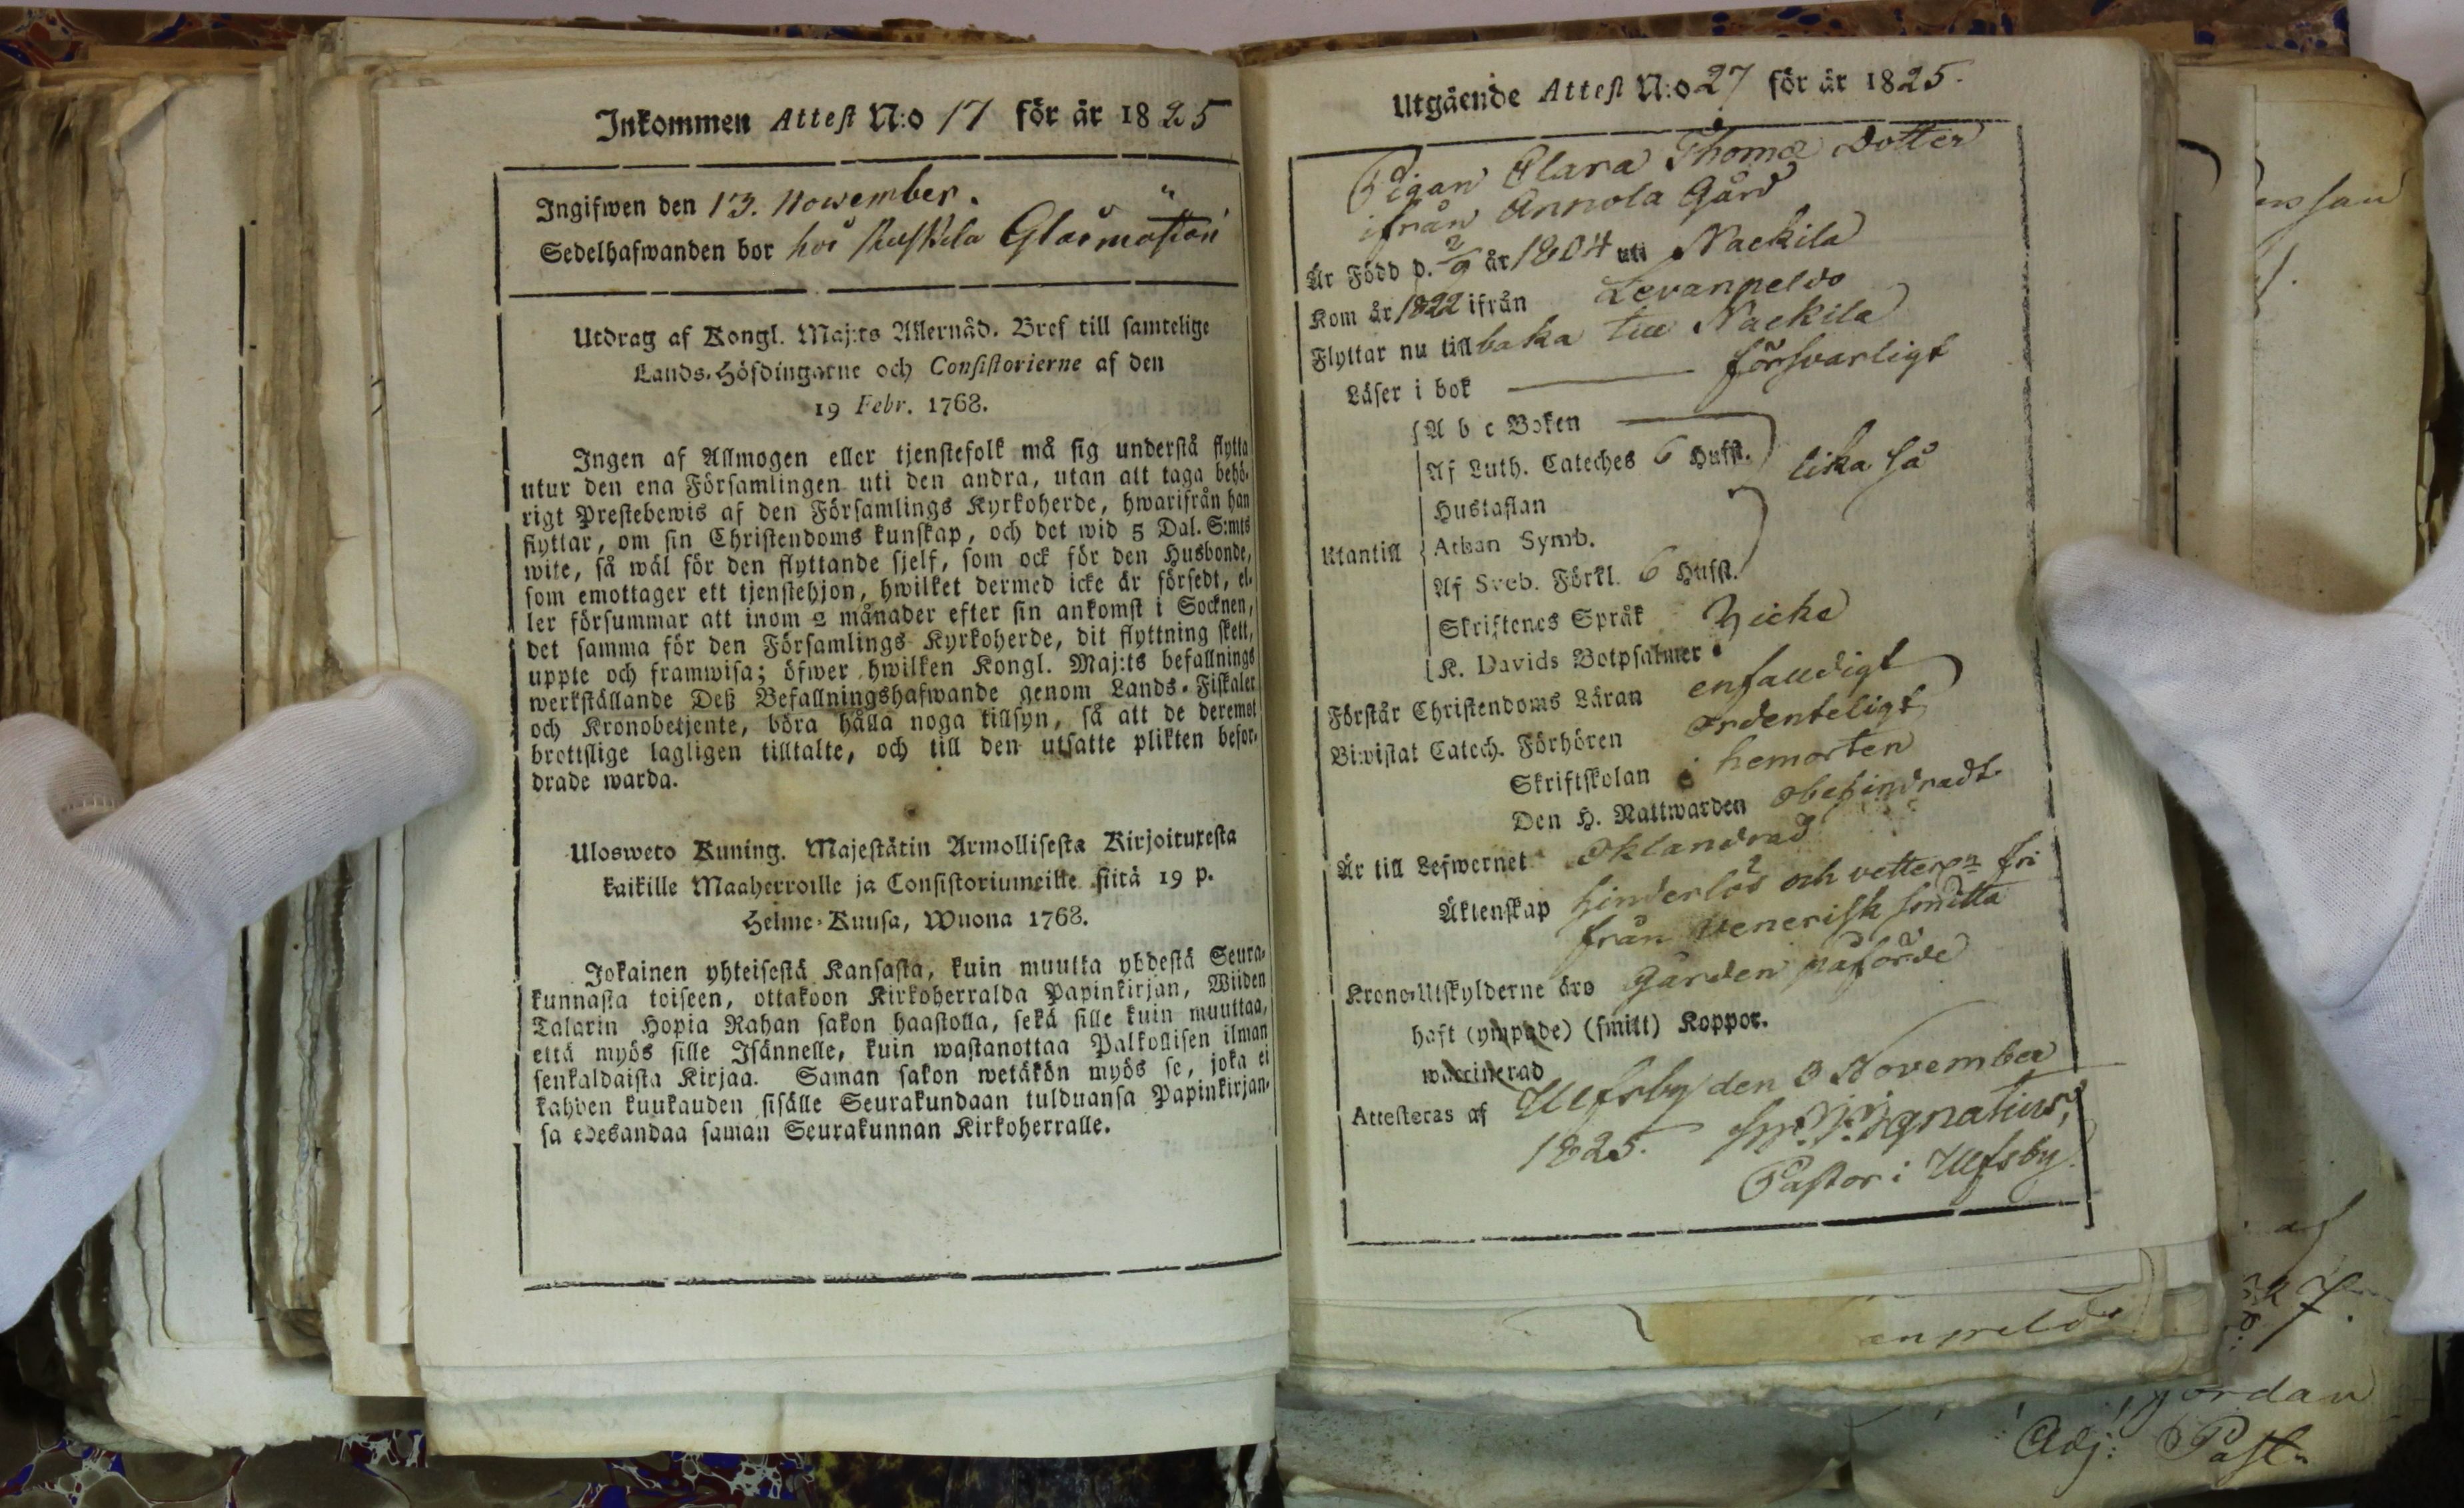 Inkommen Attest N:o 17 för år 1825
Ingifwen den 13. November.
Sedelhafwanden bor hos
Utdrag af Kongl. Maj:ts Allernåd. Bref till samtelige
Lands-Höfdingarne och Consistorierne af den
19 Febr. 1768.
Ingen af Allmogen eller tjenstefolk må sig understå flytta
utur den ena Församlingen uti den andra, utan att taga behö-
rigt Prestebewis af den Församlings Kyrkoherde, hwarifrån han
flyttar, om sin Christendoms kunskap, och det wid 5 Dal. S:mts
wite, så wäl för den flyttande sjelf, som ock för den Husbonde,
som emottager ett tjenstehjon, hwilket dermed icke är försedt, el-
ler försummar att inom 2 månader efter sin ankomst i Socknen,
det samma för den Församlings Kyrkoherde, dit flyttning skett,
uppte och framwisa; öfwer hwilken Kongl. Maj:ts befallnings
werkställande Deß Befallningshafwande genom Lands-Fiskaler
och Kronobetjente, böra hålla noga tillsyn, så att de deremot
brottslige lagligen tilltalte, och till den utsatte plikten befor-
drade warda.
Ulosweto Kuning. Majestätin Armollisesta Kirjoituxesta
kaikille Maaherroille ja Consistoriumeille siitä 19 p.
Helme-Kuusa, Wuona 1768.
Jokainen yhteisestä Kansasta, kuin muutta yhdestä Seura-
kunnasta toiseen, ottakoon Kirkoherralda Papinkirjan, Wiiden
Talarin Hopia Rahan sakon haastolla, sekä sille kuin muuttaa,
että myös sille Isännelle, kuin wastanottaa Palkollisen ilman
senkaldaista Kirjaa. Saman sakon wetäkön myös se, joka ei
kahden kuukauden sisälle Seurakundaan tulduansa Papinkirjan-
sa edesandaa saman Seurakunnan Kirkoherralle.
Utgående Attest N:o 27 för år 1825.
Pigan Clara Thomæ Dotter
ifrån Annola Gård
Är Född d. 2/9 år 1804 uti Nackila
Kom år 1822 ifrån Levanpeldo
Flyttar nu tillbaka till Nackila
Läser i bok försvarligt
A b c Boken
Af Luth. Cateches 6 Hufst. lika så
Hustaflan
Utantill Athan Symb.
Af Sveb. Förkl. 6 Hufst.
Skriftenes Språk
K. Davids Botpsalmer
Förstår Christendoms Läran enfalldigt
Biwistat Catech. Förhören ordenteligt
Skriftskolan i hemorten
Den H. Nattwarden obehindradt
Är till Lefwernet oklandrad
Äktenskap hinderlös och fri
från Venerisk smitta
Krono-Utskylderne äro Gården påförde
haft (ympade) (smitt) Koppor.
waccinerad
Attesteras af Ulfsby den 3 November
1825. Ignatius,
Pastor i Ulfsby.
Adj: Past: